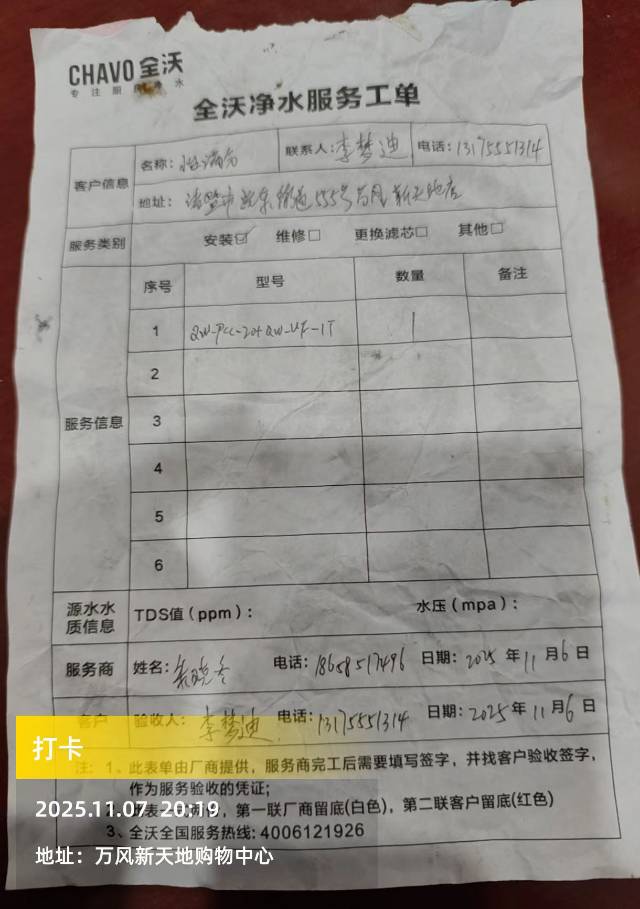 CHAVO 全沃
专注厨房净水
全沃净水服务工单
客户信息
名称：
联系人：李梦迪
电话：13175551314
地址：诸暨市 555号万风新天地店
服务类别
安装☑ 维修□ 更换滤芯□ 其他□
服务信息
序号 型号 数量 备注
1 QW-PCC-20+QW-UF-1T 1
2
3
4
5
6
源水水质信息
TDS值（ppm）： 水压（mpa）：
服务商
姓名：朱晓冬 电话：18658517496 日期：2025年11月6日
客户
验收人：李梦迪 电话：13175551314 日期：2025年11月6日
注：1、此表单由厂商提供，服务商完工后需要填写签字，并找客户验收签字，
作为服务验收的凭证；
2、此表一式两份，第一联厂商留底(白色)，第二联客户留底(红色)
3、全沃全国服务热线：4006121926
打卡
2025.11.07 20:19
地址：万风新天地购物中心